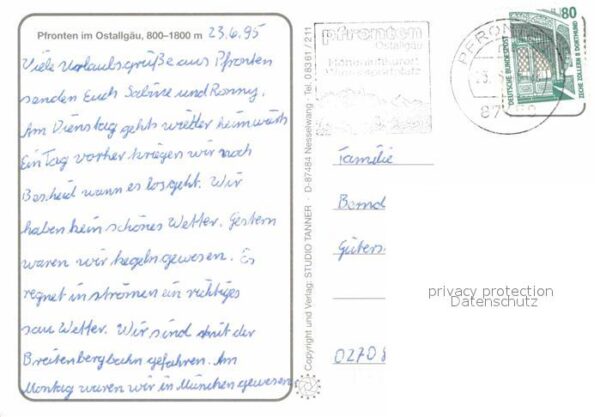 Pfronten im Ostallgäu, 800–1800 m 23.6.95
Viele Urlaubsgrüße aus Pfronten
senden Euch Sabine und Ronny.
Am Dienstag gehts wieder heimwärts
Ein Tag vorher kriegen wir noch
Bescheid wann es los geht. Wir
haben kein schönes Wetter. Gestern
waren wir kegeln gewesen. Es
regnet in strömen ein richtiges
sau Wetter. Wir sind mit der
Breitenbergbahn gefahren. Am
Montag waren wir in München gewesen
Copyright und Verlag: STUDIO TANNER D-87484 Nesselwang · Tel. 08361/211
pfronten
Ostallgäu
PFRONTEN
80
DEUTSCHE BUNDESPOST
ZECHE ZOLLERN II DORTMUND
Familie
Bernd
Güters
02708
privacy protection
Datenschutz